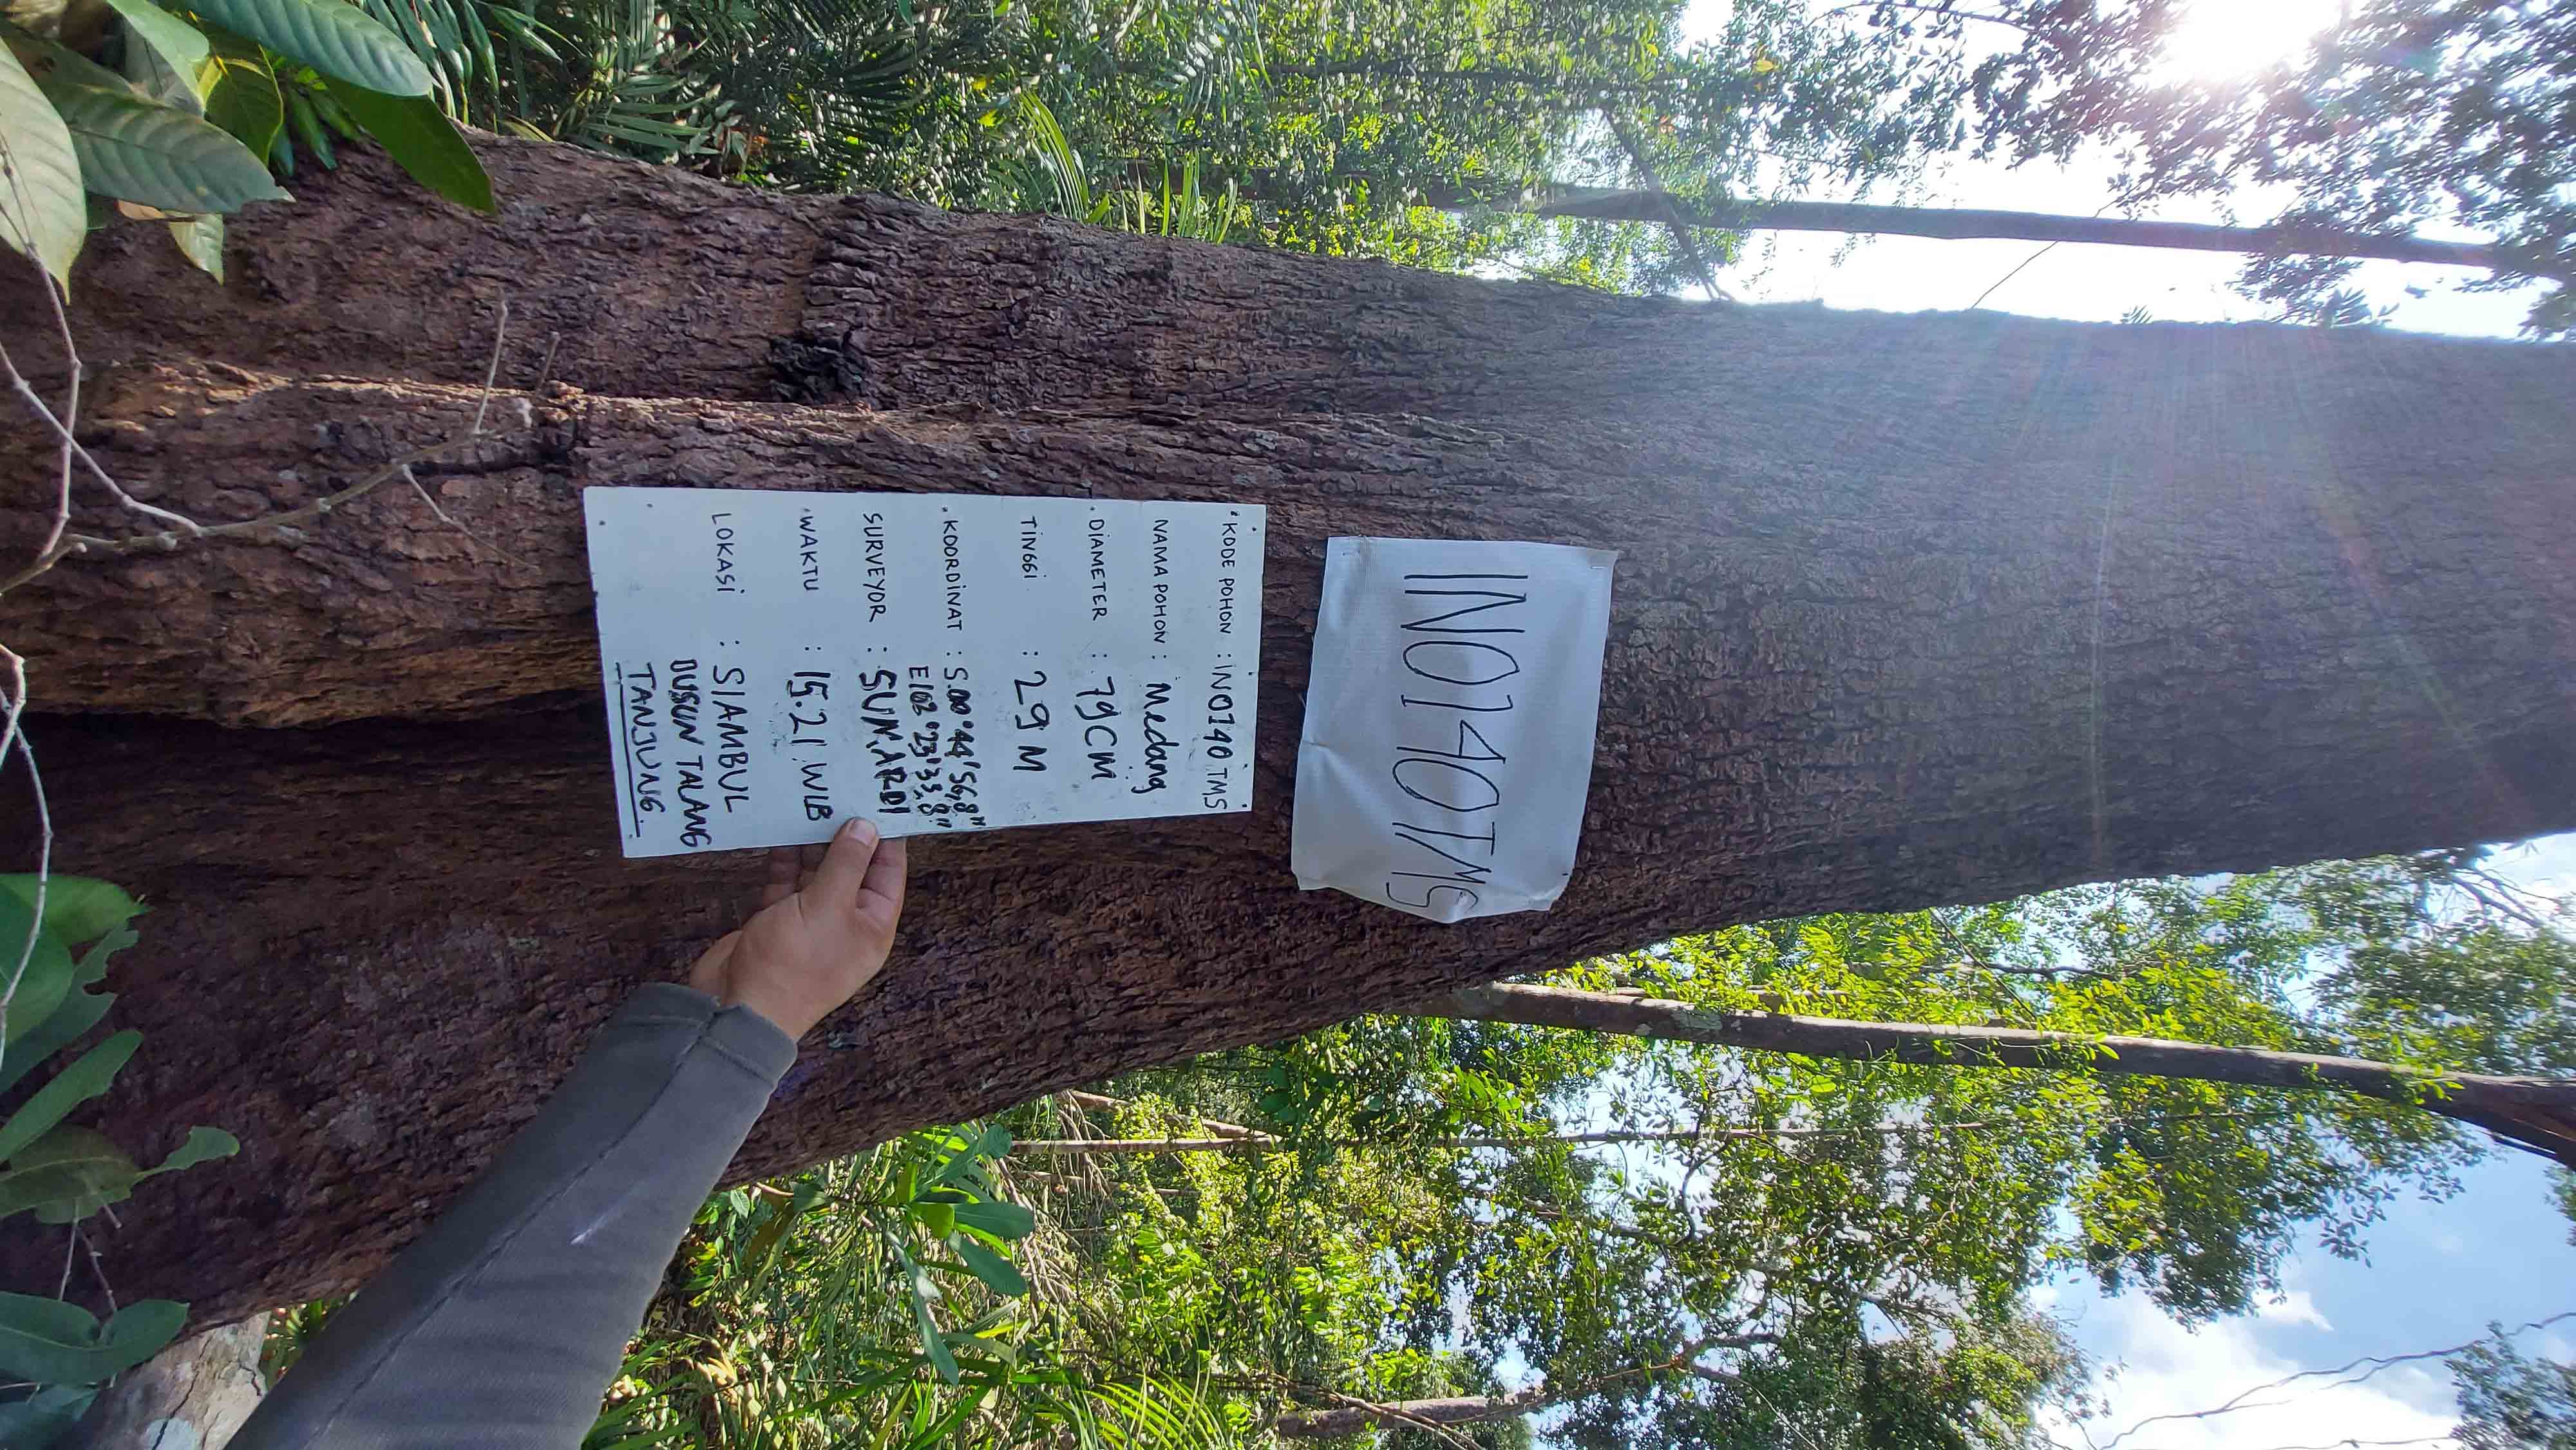 IN0140TMS
KODE POHON : IN0140 TMS
NAMA POHON : Medang
DIAMETER : 79 CM
TINGGI : 29 M
KOORDINAT : S.00°44'56,8"
E103°23'33,8"
SURVEYOR : SUMARDI
WAKTU : 15.21 WIB
LOKASI : SIAMBUL
DUSUN TALANG
TANJUNG.